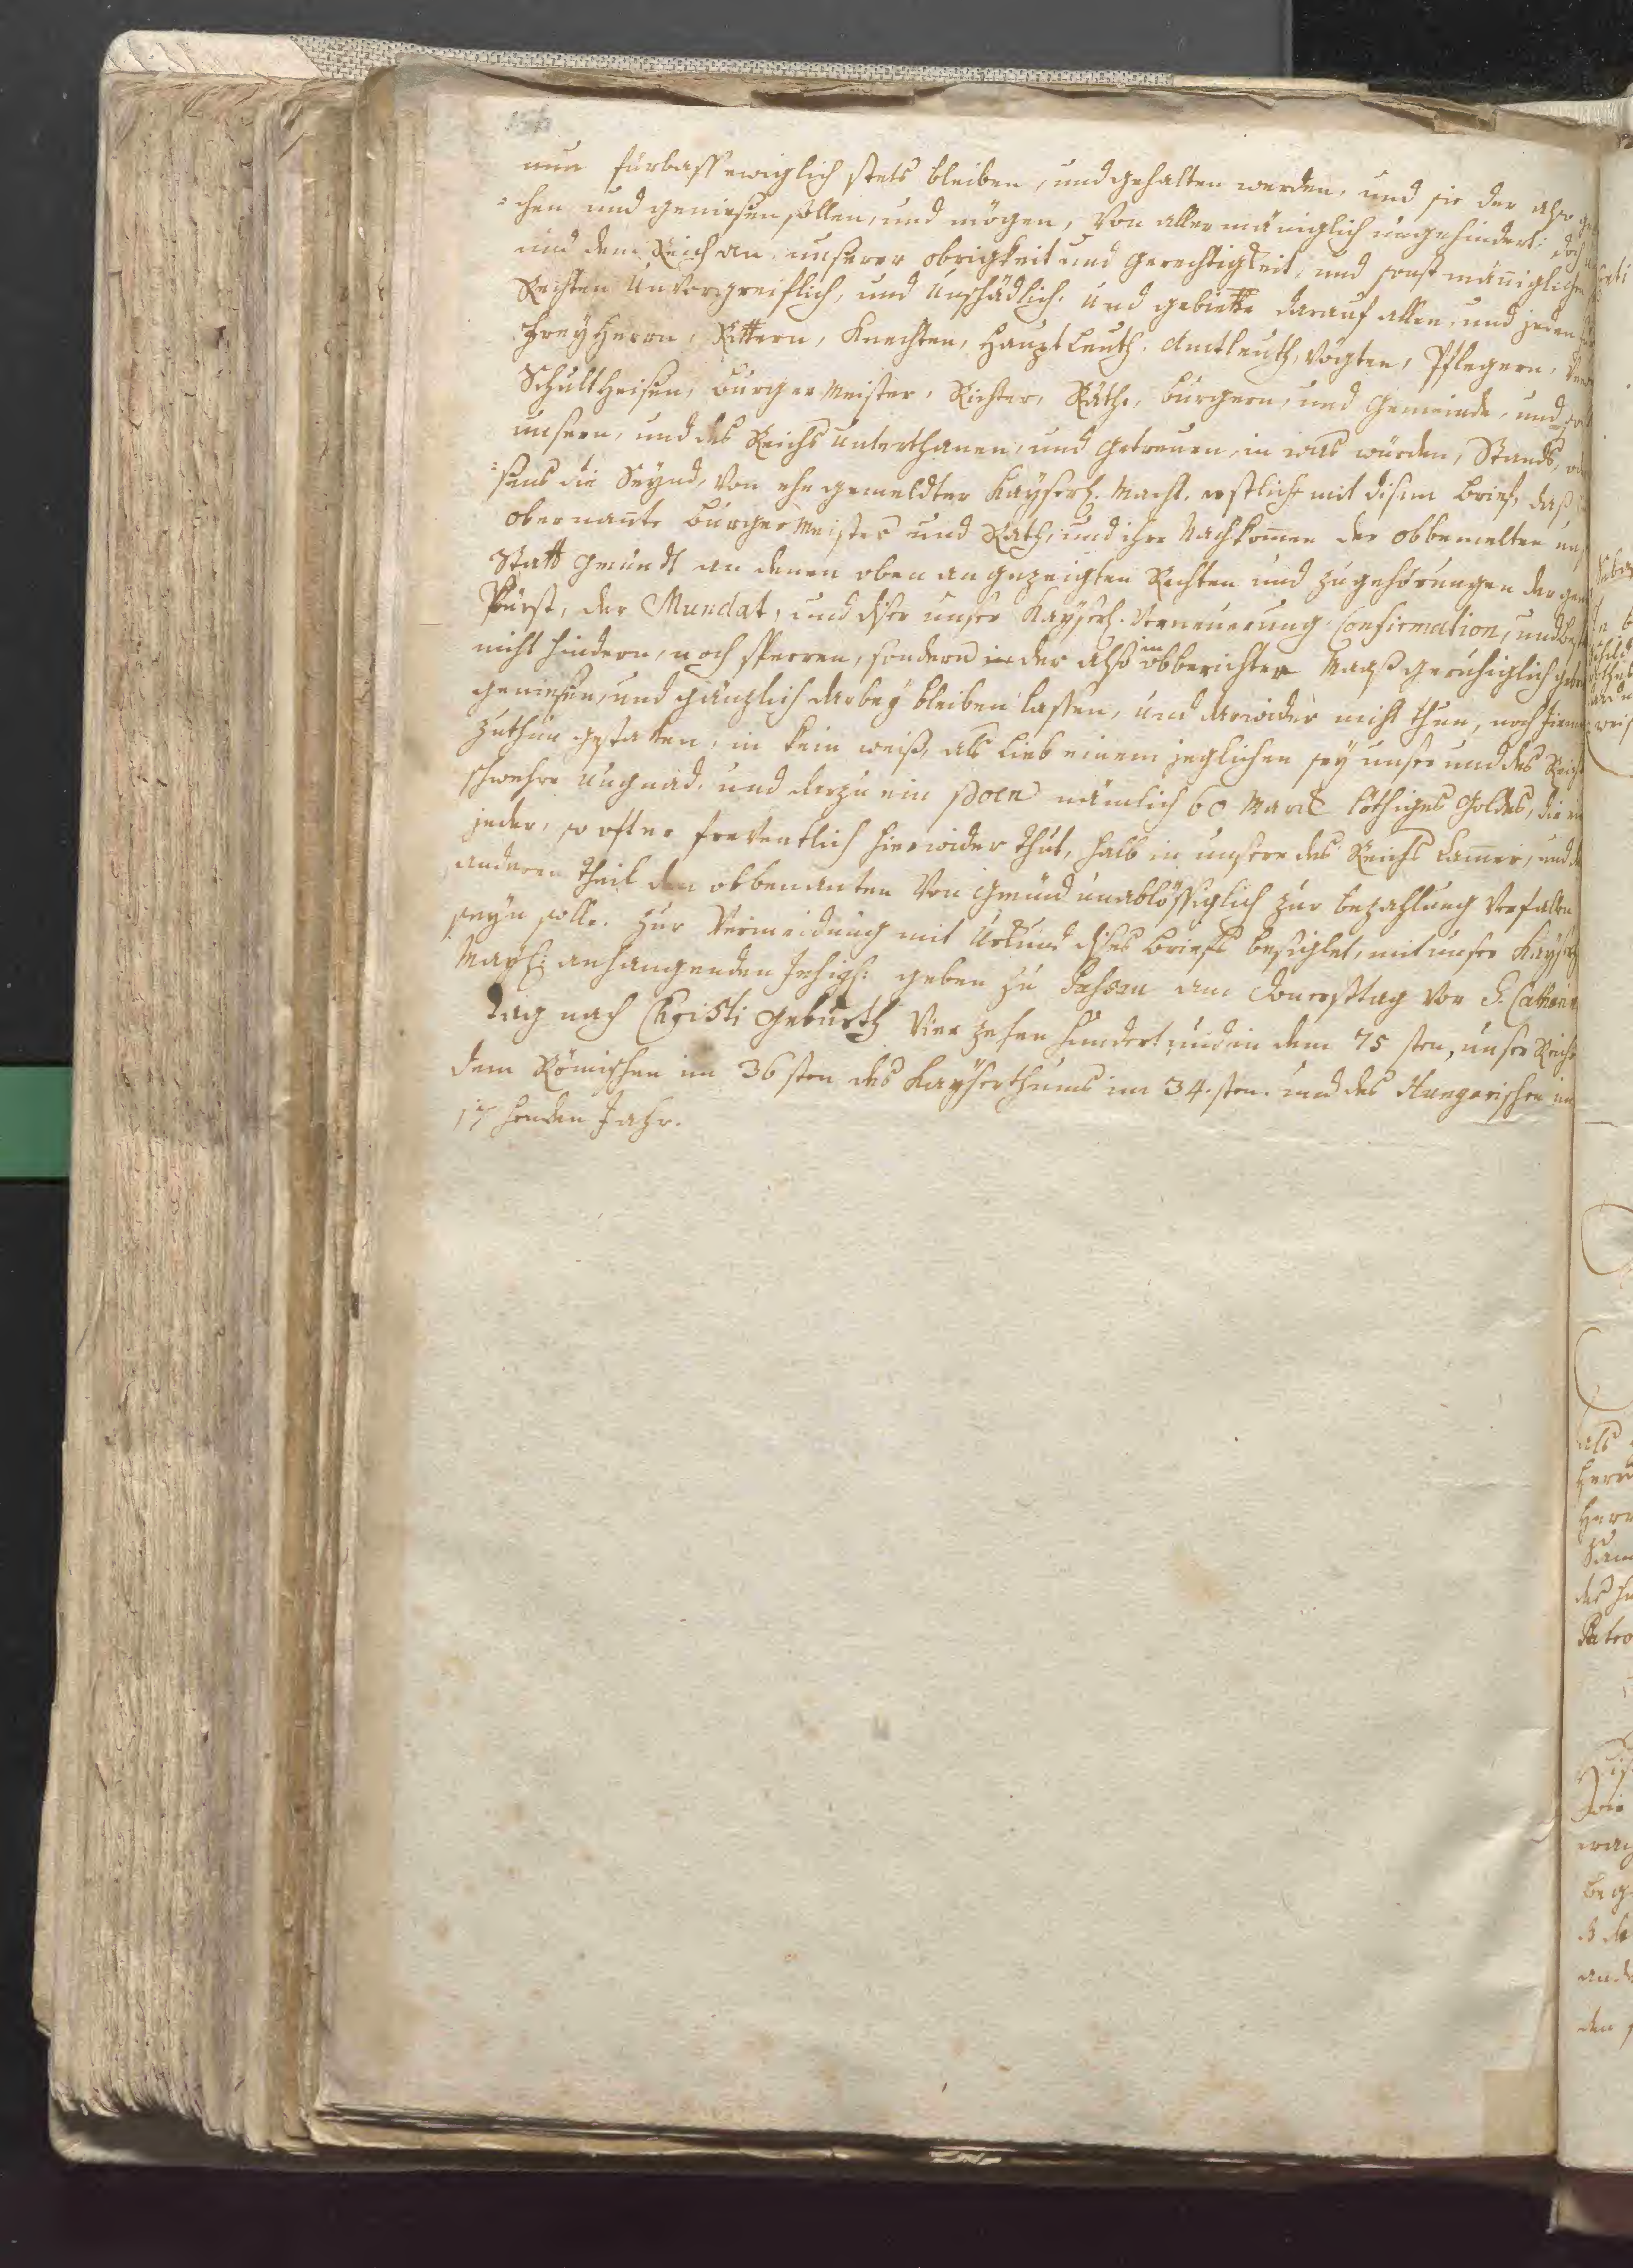 nun fürbass ewiglich stets bleiben, und gehalten werden, und sie der also
=chen und geniesen sollen, und mögen, Von aller mäniglich ungehindert: doch
und dem Reich an unserer obrigkeit und gerechtigkeit, und sonst männiglichen
Rechten Unvorgreiflich, und Unschädlich. Und gebiette darauf allen, und jeden
FreyHerrn, Rittern, Knechten, HauptLeuth. Amtleuth, Vögten, Pflegern,
SchultHeisen, burgerMeister, Richter, Räthe, burgern, und Gemeinde, und
unsern, und des Reichs Unterthanen, und getreuen, in was würden, Stands,
=sens die Seynd, Von ehegemeldter Kayserl. Macht, erstlich mit disem brief, daß
obernante burgerMeister und Rath, und ihre Nachkomen der obbemelten
Statt Gmündt an denen oben angezeigten Rechten und zugehörungen der
Pürst, der Mundat, und diser unser Kayserl. Verneuerung Confirmation, und
nicht hindern, noch sperren, sondern in der also in obberichter Maaß geruhiglich
geniesen, und gänzlich darbey bleiben lassen, und darwider nicht thun, noch
zuthun gestatten, in kein weiß, als lieb einem jeglichen sey unser und des Reichs
schwehre Ungnad. und darzu ein poen nämlich 60 Marck löthiges Goldes, die ein
jeder, so offt er freventlich hierwider thut, halb in unsere des Reichs Camer, und
anderen theil den obbenanten Von Gmünd unablössiglich zur bezahlung Verfallen
seyn solle. zur Vermeidung mit Urkund dises briefs besiglet, mit unser Kayserl
May: anhangenden Insigl: geben zu Passau am Donerstag Vor S. Catharin
Tag nach Christi Geburth Vierzehen hundert, und in dem 75 sten, unser Reichs
dem Römischen im 36 sten des Kayserthums im 34.sten. und des Hungarischen im
17 henden Jahr.